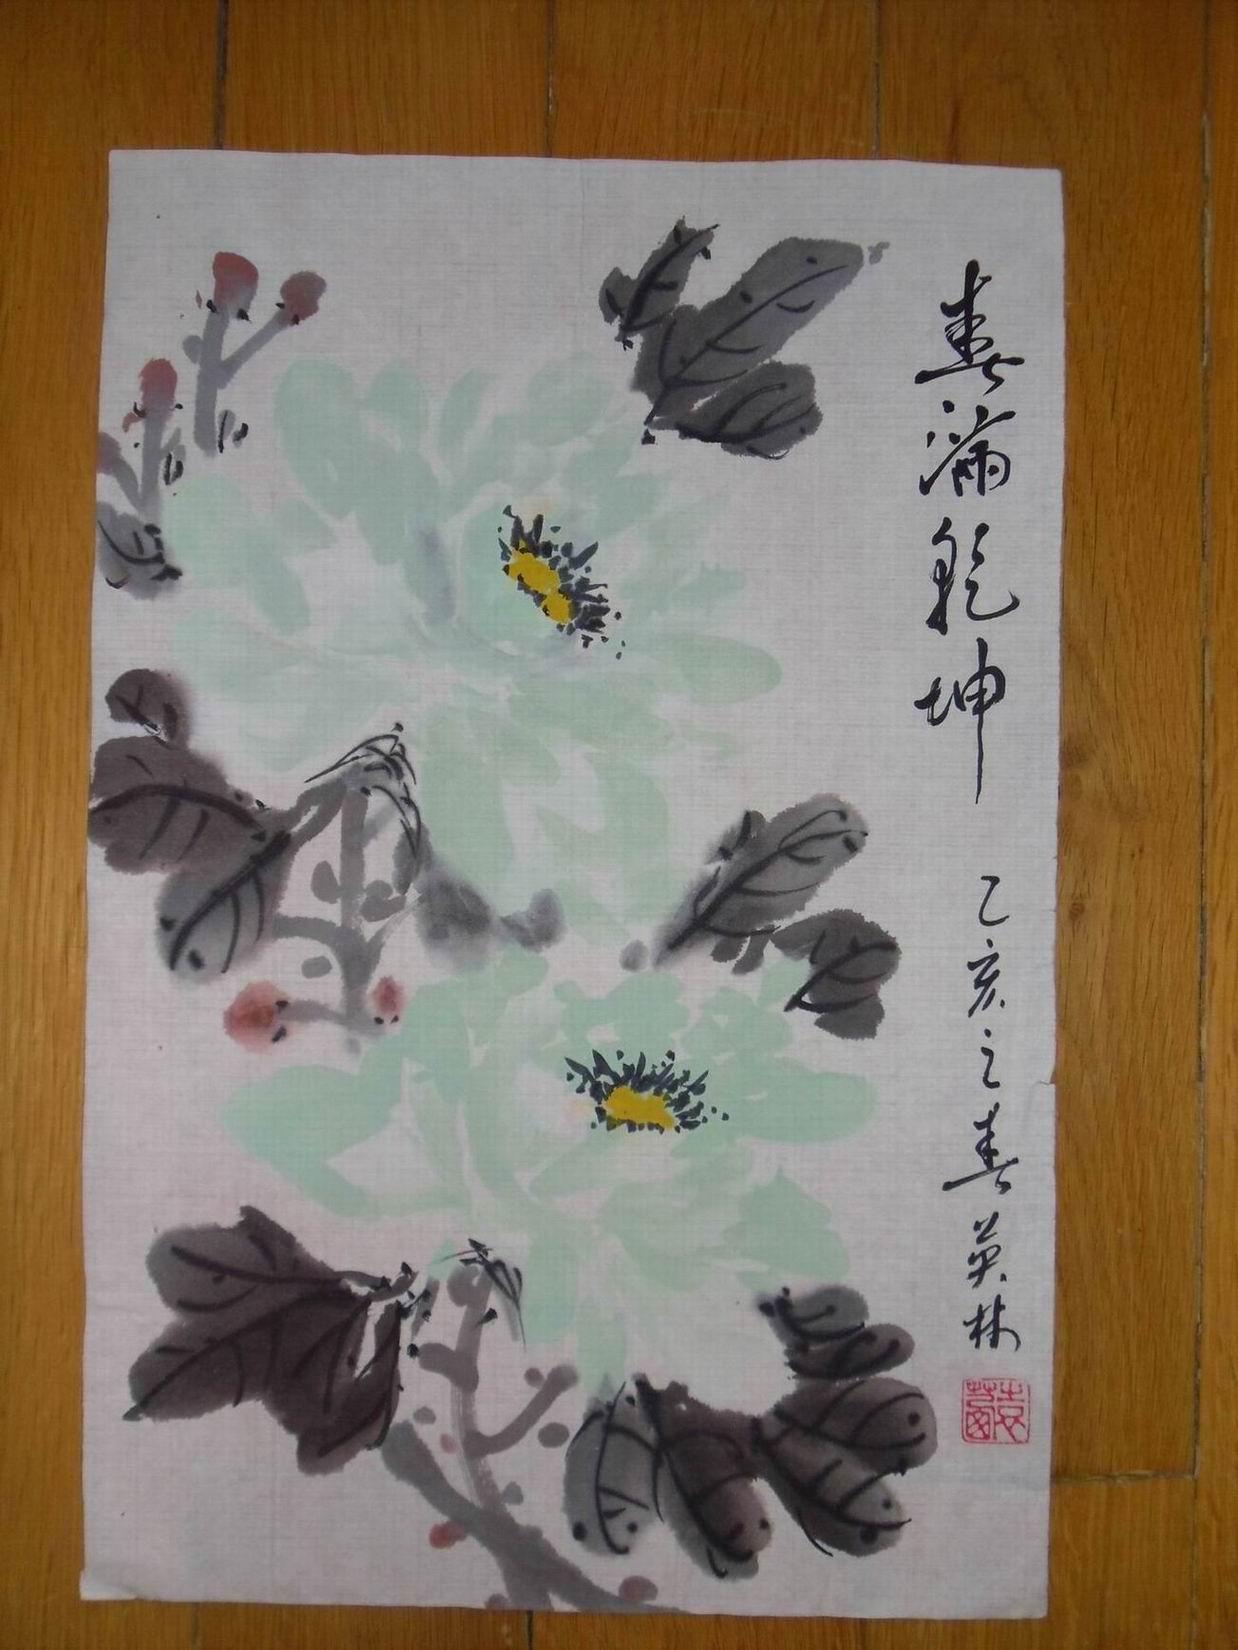 春满乾坤
乙亥之春 英林